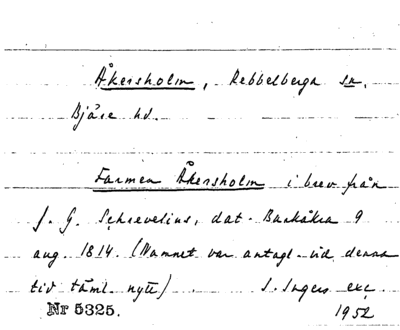 Åkersholm, Rebbelberga sn.
Bjäre hd.
Formen Åkersholm i brev från
J. G. Schrevelius, dat. Barkåkra 9
aug. 1814. (Namnet var antagl. vid denna
tid täml. nytt) I. Ingers exc.
Nr 5325. 1952